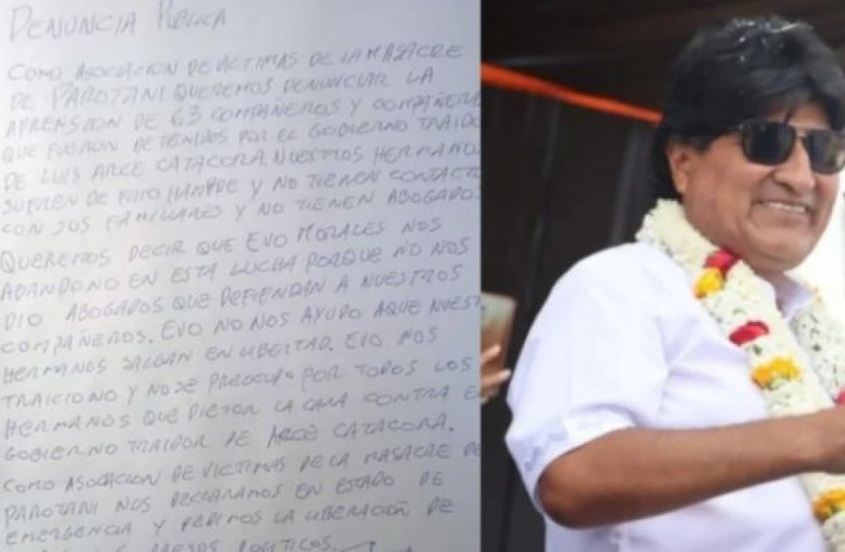 DENUNCIA PUBLICA
COMO ASOCIACION DE VICTIMAS DE LA MASACRE
DE PAROTANI QUEREMOS DENUNCIAR LA
APRENSION DE 63 COMPAÑEROS Y COMPAÑERA
QUE FUERON DETENIDOS POR EL GOBIERNO TRAIDO
DE LUIS ARCE CATACORA. NUESTROS HERMANO
SUFREN DE FRIO HAMBRE Y NO TIENEN CONTACTO
CON SUS FAMILIARES Y NO TIENEN ABOGADOS
QUEREMOS DECIR QUE EVO MORALES NOS
ABANDONO EN ESTA LUCHA PORQUE NO NOS
DIO ABOGADOS QUE DEFIENDAN A NUESTROS
COMPAÑEROS. EVO NO NOS AYUDO AQUE NUEST
HERMANOS SALGAN EN LIBERTAD. EVO NOS
TRAICIONO Y NO SE PREOCUPO POR TODOS LOS
HERMANOS QUE DIERON LA CARA CONTRA E
GOBIERNO TRAIDOR DE ARCE CATACORA.
COMO ASOCIACION DE VICTIMAS DE LA MASACRE DE
PAROTANI NOS DECLARAMOS EN ESTADO DE
EMERGENCIA Y PEDIMOS LA LIBERACION DE
PRESOS POLITICOS.